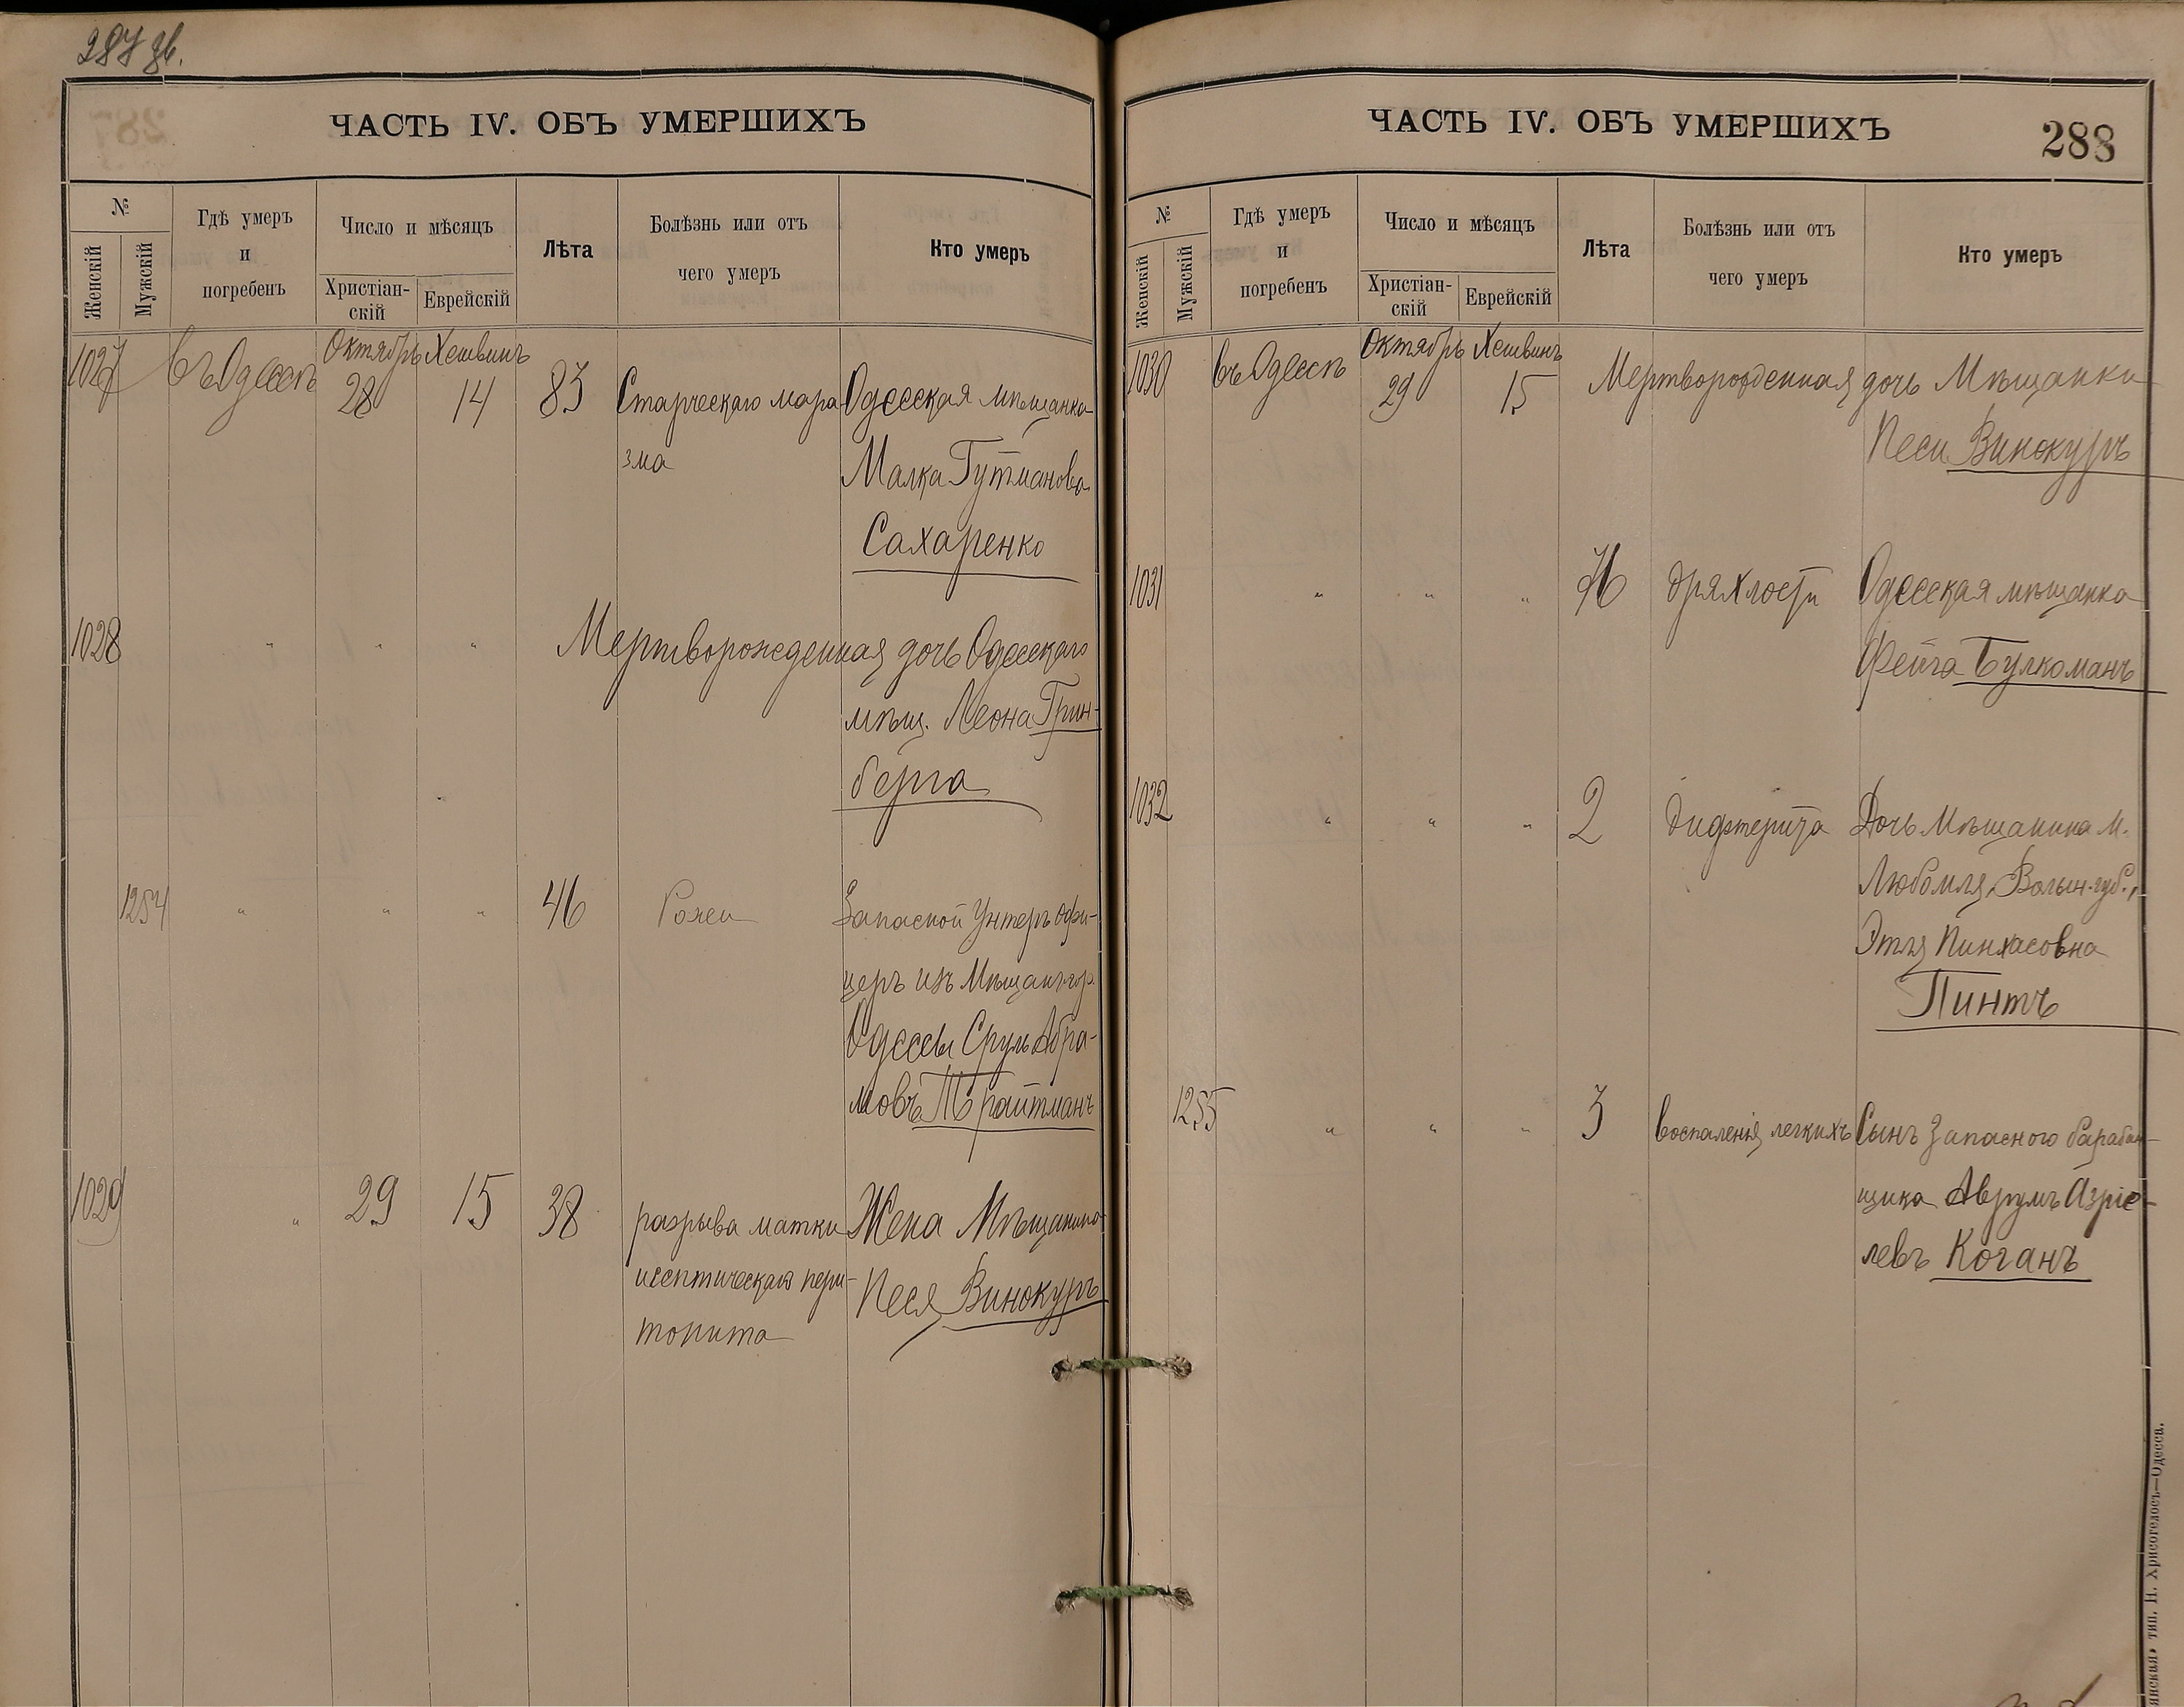 287 об.
ЧАСТЬ IV. ОБЪ УМЕРШИХЪ
№
Женскій
Мужскій
Гдѣ умеръ
и
погребенъ
Число и мѣсяцъ
Христіан-
скій
Еврейскій
Лѣта
Болѣзнь или отъ
чего умеръ
Кто умеръ
Октябрь Хешвинъ
1027 въ Одессѣ 28 14 83 Старческаго мара- Одесская мѣщанка
зма Малка Гутманова
Сахаренко
1028 " " " Мертворожденная дочь Одесскаго
мѣщ. Леона Грин-
берга
1254 " " " 46 Рожи Запасной Унтеръ офи-
церъ изъ Мѣщанъ гор.
Одессы Сруль Абра-
мовъ Трайтманъ
1029 " 29 15 38 разрыва матки Жена Мѣщанина
исептическаго пери- Песя Винокуръ
тонита
ЧАСТЬ IV. ОБЪ УМЕРШИХЪ
288
№
Женскій
Мужскій
Гдѣ умеръ
и
погребенъ
Число и мѣсяцъ
Христіан-
скій
Еврейскій
Лѣта
Болѣзнь или отъ
чего умеръ
Кто умеръ
Октябрь Хешвинъ
1030 въ Одессѣ 29 15 Мертворожденная дочь Мѣщанки
Песи Винокуръ
1031 " " " 76 дряхлости Одесская мѣщанка
Фейга Булкоманъ
1032 " " " 2 дифтерита Дочь Мѣщанина м.
Любомля, Волын. губ.,
Этля Пинхасовна
Пинтъ
1255 " " " 3 воспаленія легкихъ Сынъ Запасного барабан-
щика Аврумъ Азріе-
левъ Коганъ
тип. Н. Хрисогелосъ—Одесса.